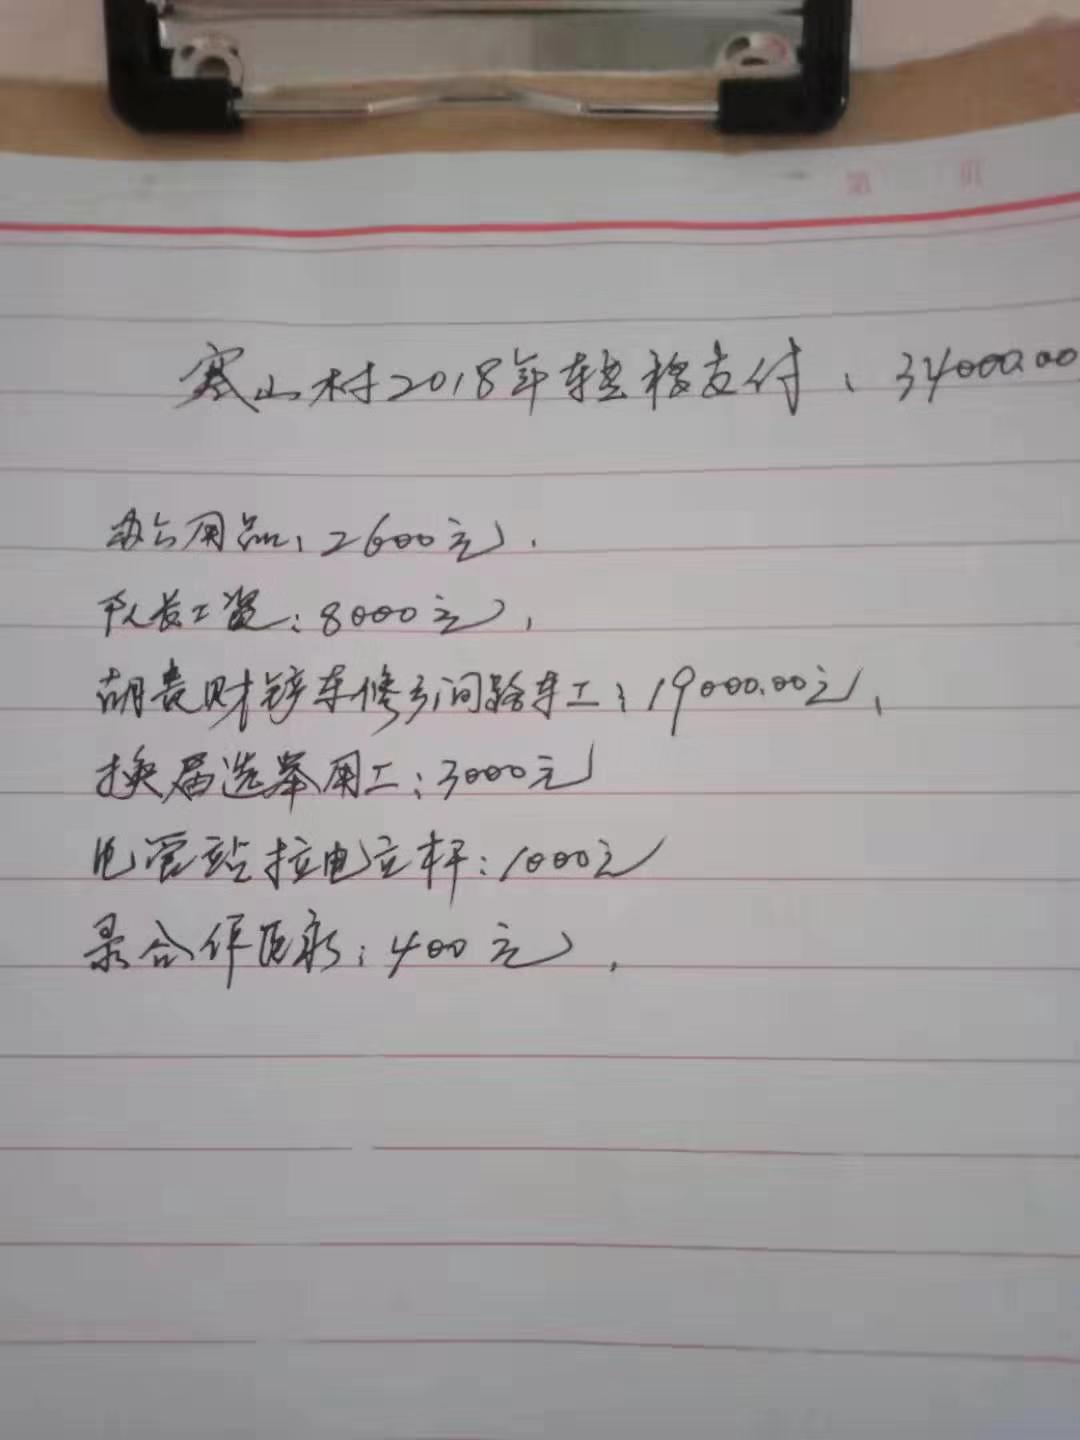 第 页
寨山村2018年转移支付、34000.00
办公用品、2600元、
队长工资:8000元、
胡贵财铲车修引间路车工:19000.00元、
换届选举用工:3000元
电管站拉电立杆:1000元
录合作医疗:400元、